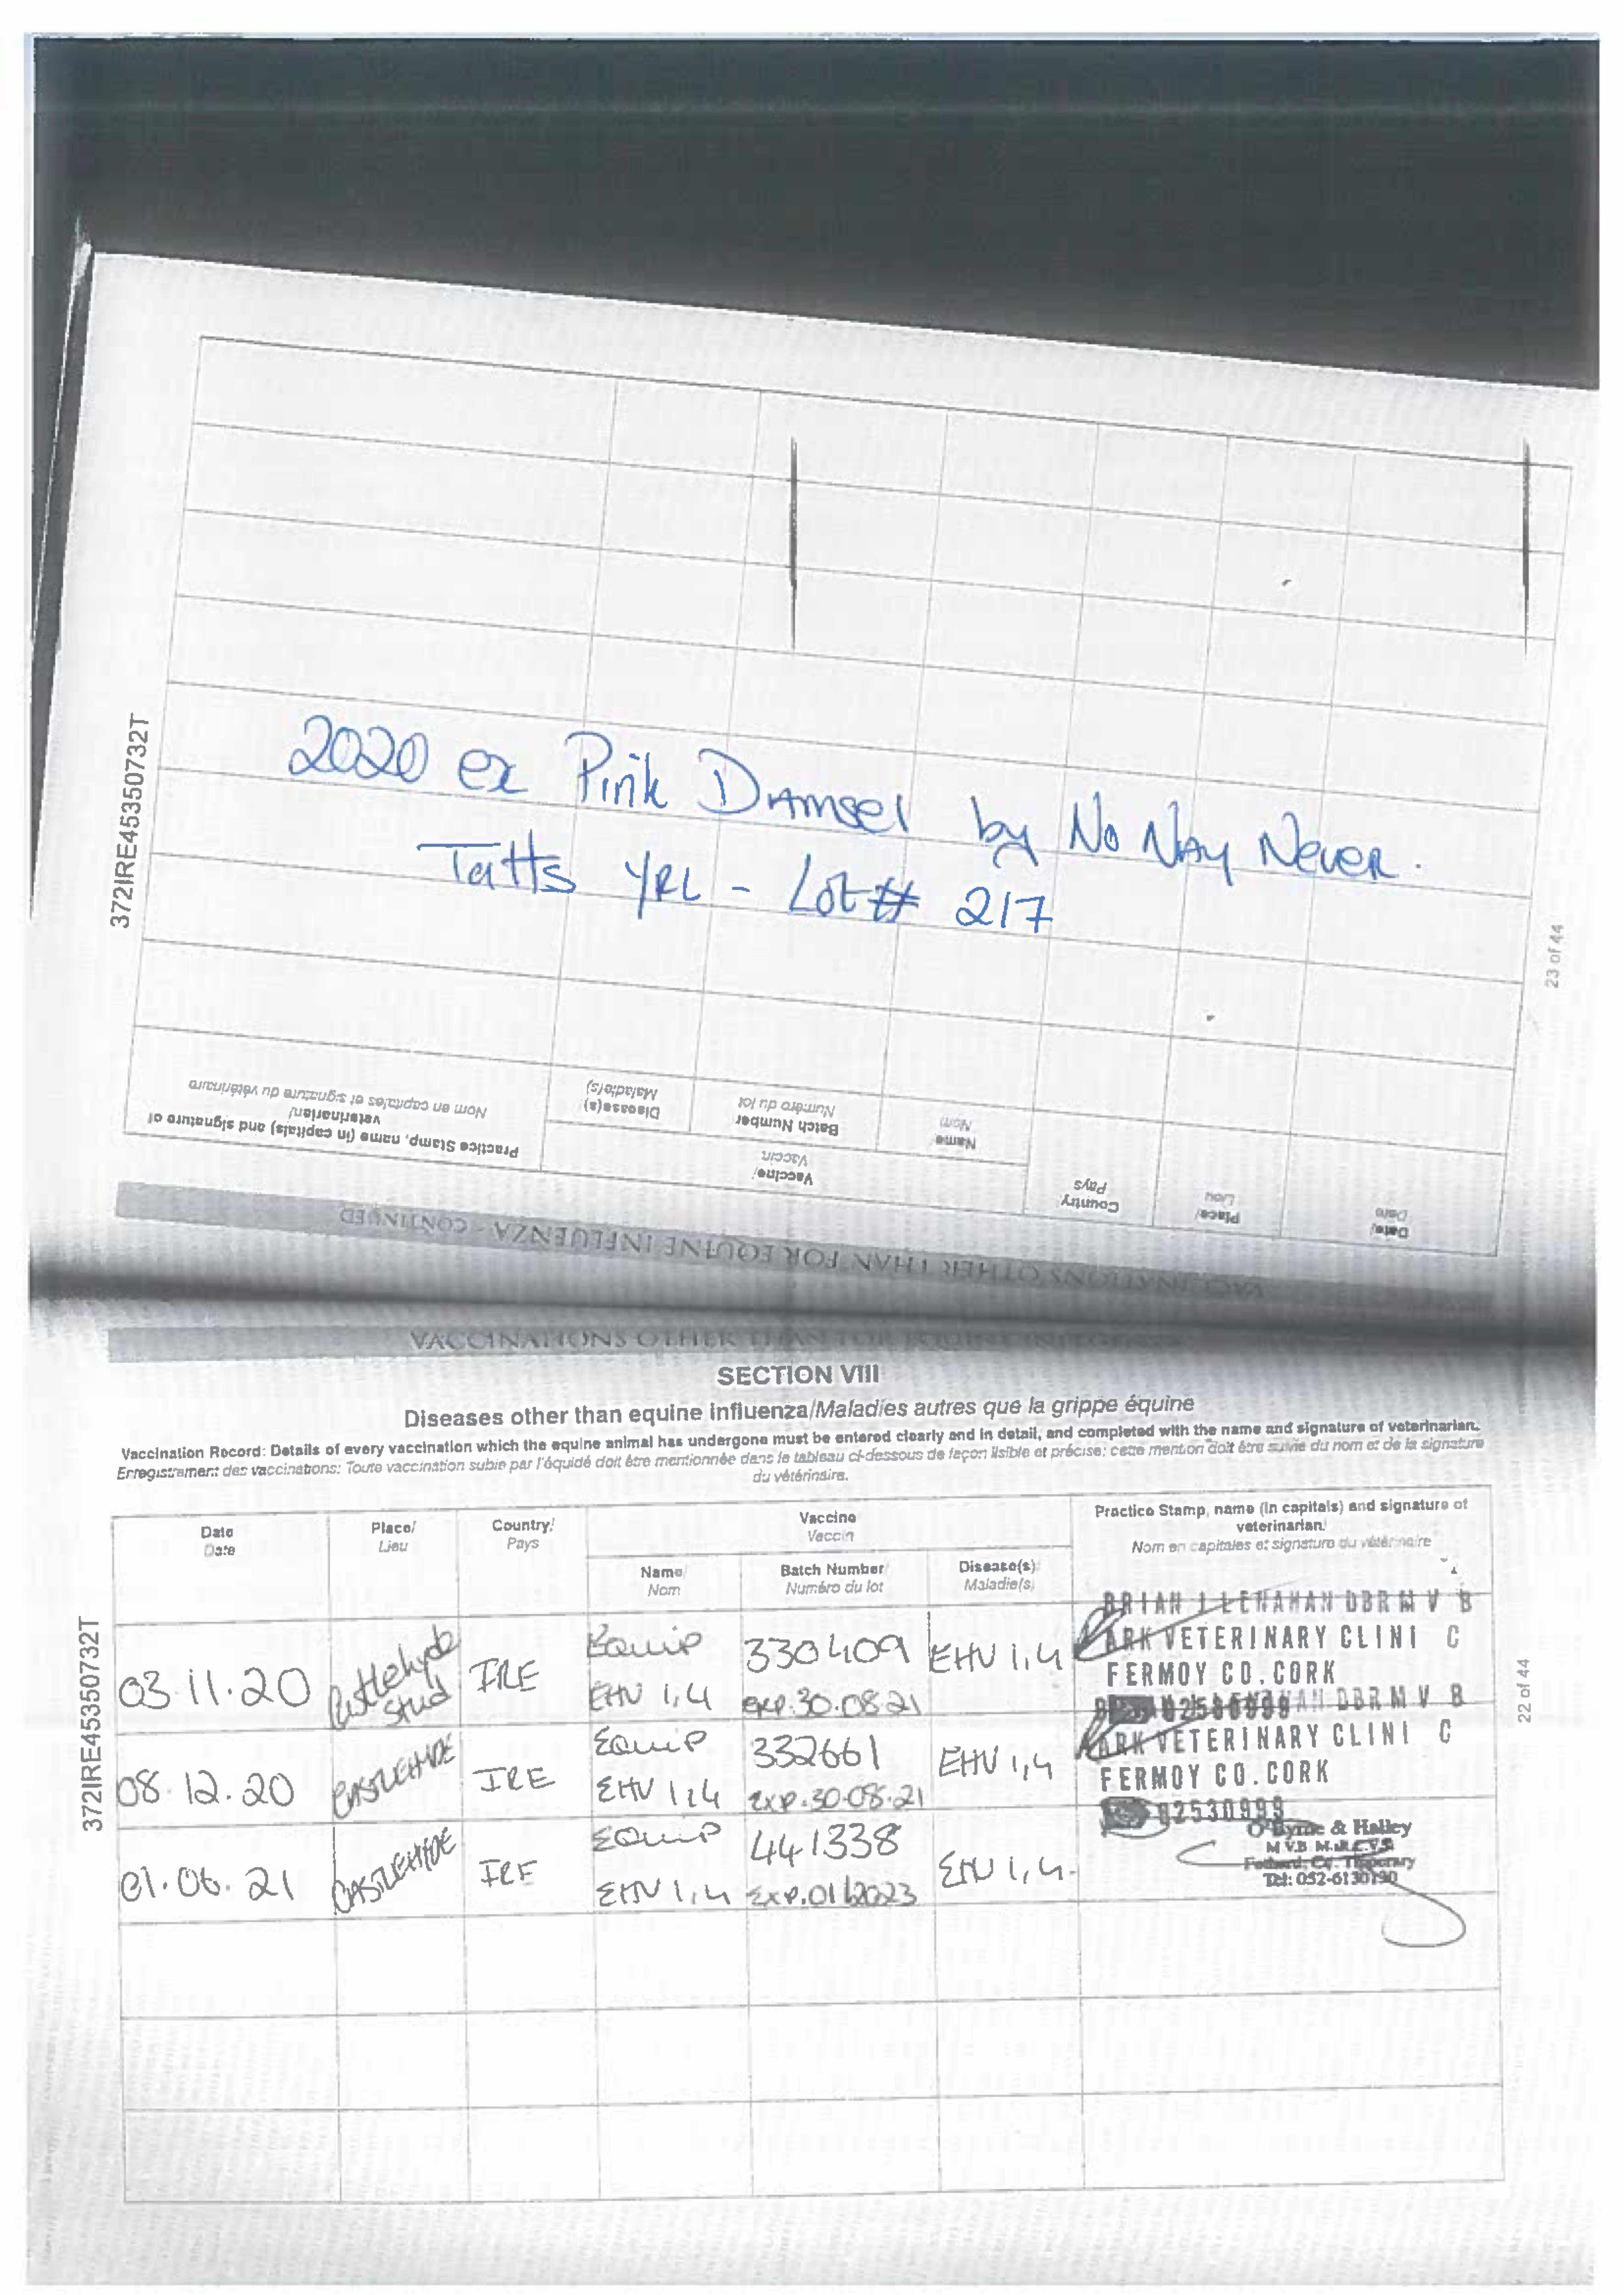 2020 ex Pink Damsel by No Nay Never.
Tatts YRL - Lot # 217
372IRE45350732T
23 of 44
VACCINATIONS OTHER THAN FOR EQUINE INFLUENZA - CONTINUED
Date/
Date
Place/
Lieu
Country/
Pays
Vaccine/
Vaccin
Name/
Nom
Batch Number
Numéro du lot
Disease(s)
Maladie(s)
Practice Stamp, name (in capitals) and signature of
veterinarian/
Nom en capitales et signature du vétérinaire
VACCINATIONS OTHER THAN FOR EQUINE INFLUENZA
SECTION VIII
Diseases other than equine influenza/Maladies autres que la grippe équine
Vaccination Record: Details of every vaccination which the equine animal has undergone must be entered clearly and in detail, and completed with the name and signature of veterinarian.
Enregistrement des vaccinations: Toute vaccination subie par l'équidé doit être mentionnée dans le tableau ci-dessous de façon lisible et précise; cette mention doit être suivie du nom et de la signature
du vétérinaire.
Date
Date
Place/
Lieu
Country/
Pays
Vaccine
Vaccin
Name/
Nom
Batch Number/
Numéro du lot
Disease(s)/
Maladie(s)
Practice Stamp, name (in capitals) and signature of
veterinarian/
Nom en capitales et signature du vétérinaire
372IRE45350732T
22 of 44
03.11.20 Castlehyde Stud IRE Equip EHV 1,4 330409 exp.30.08.21 EHV 1,4
BRIAN J LENAHAN DBR M V B
PARK VETERINARY CLINI C
FERMOY CO.CORK
08.12.20 CASTLEHYDE IRE Equip EHV 1,4 332661 exp.30.08.21 EHV 1,4
DBR M V B
PARK VETERINARY CLINI C
FERMOY CO.CORK
02530999
01.06.21 CASTLEHYDE IRE Equip EHV 1,4 441338 exp.01/2023 EHV 1,4.
O'Byrne & Halley
M.V.B. M.R.C.V.S.
Fethard, Co. Tipperary
Tel: 052-6130190